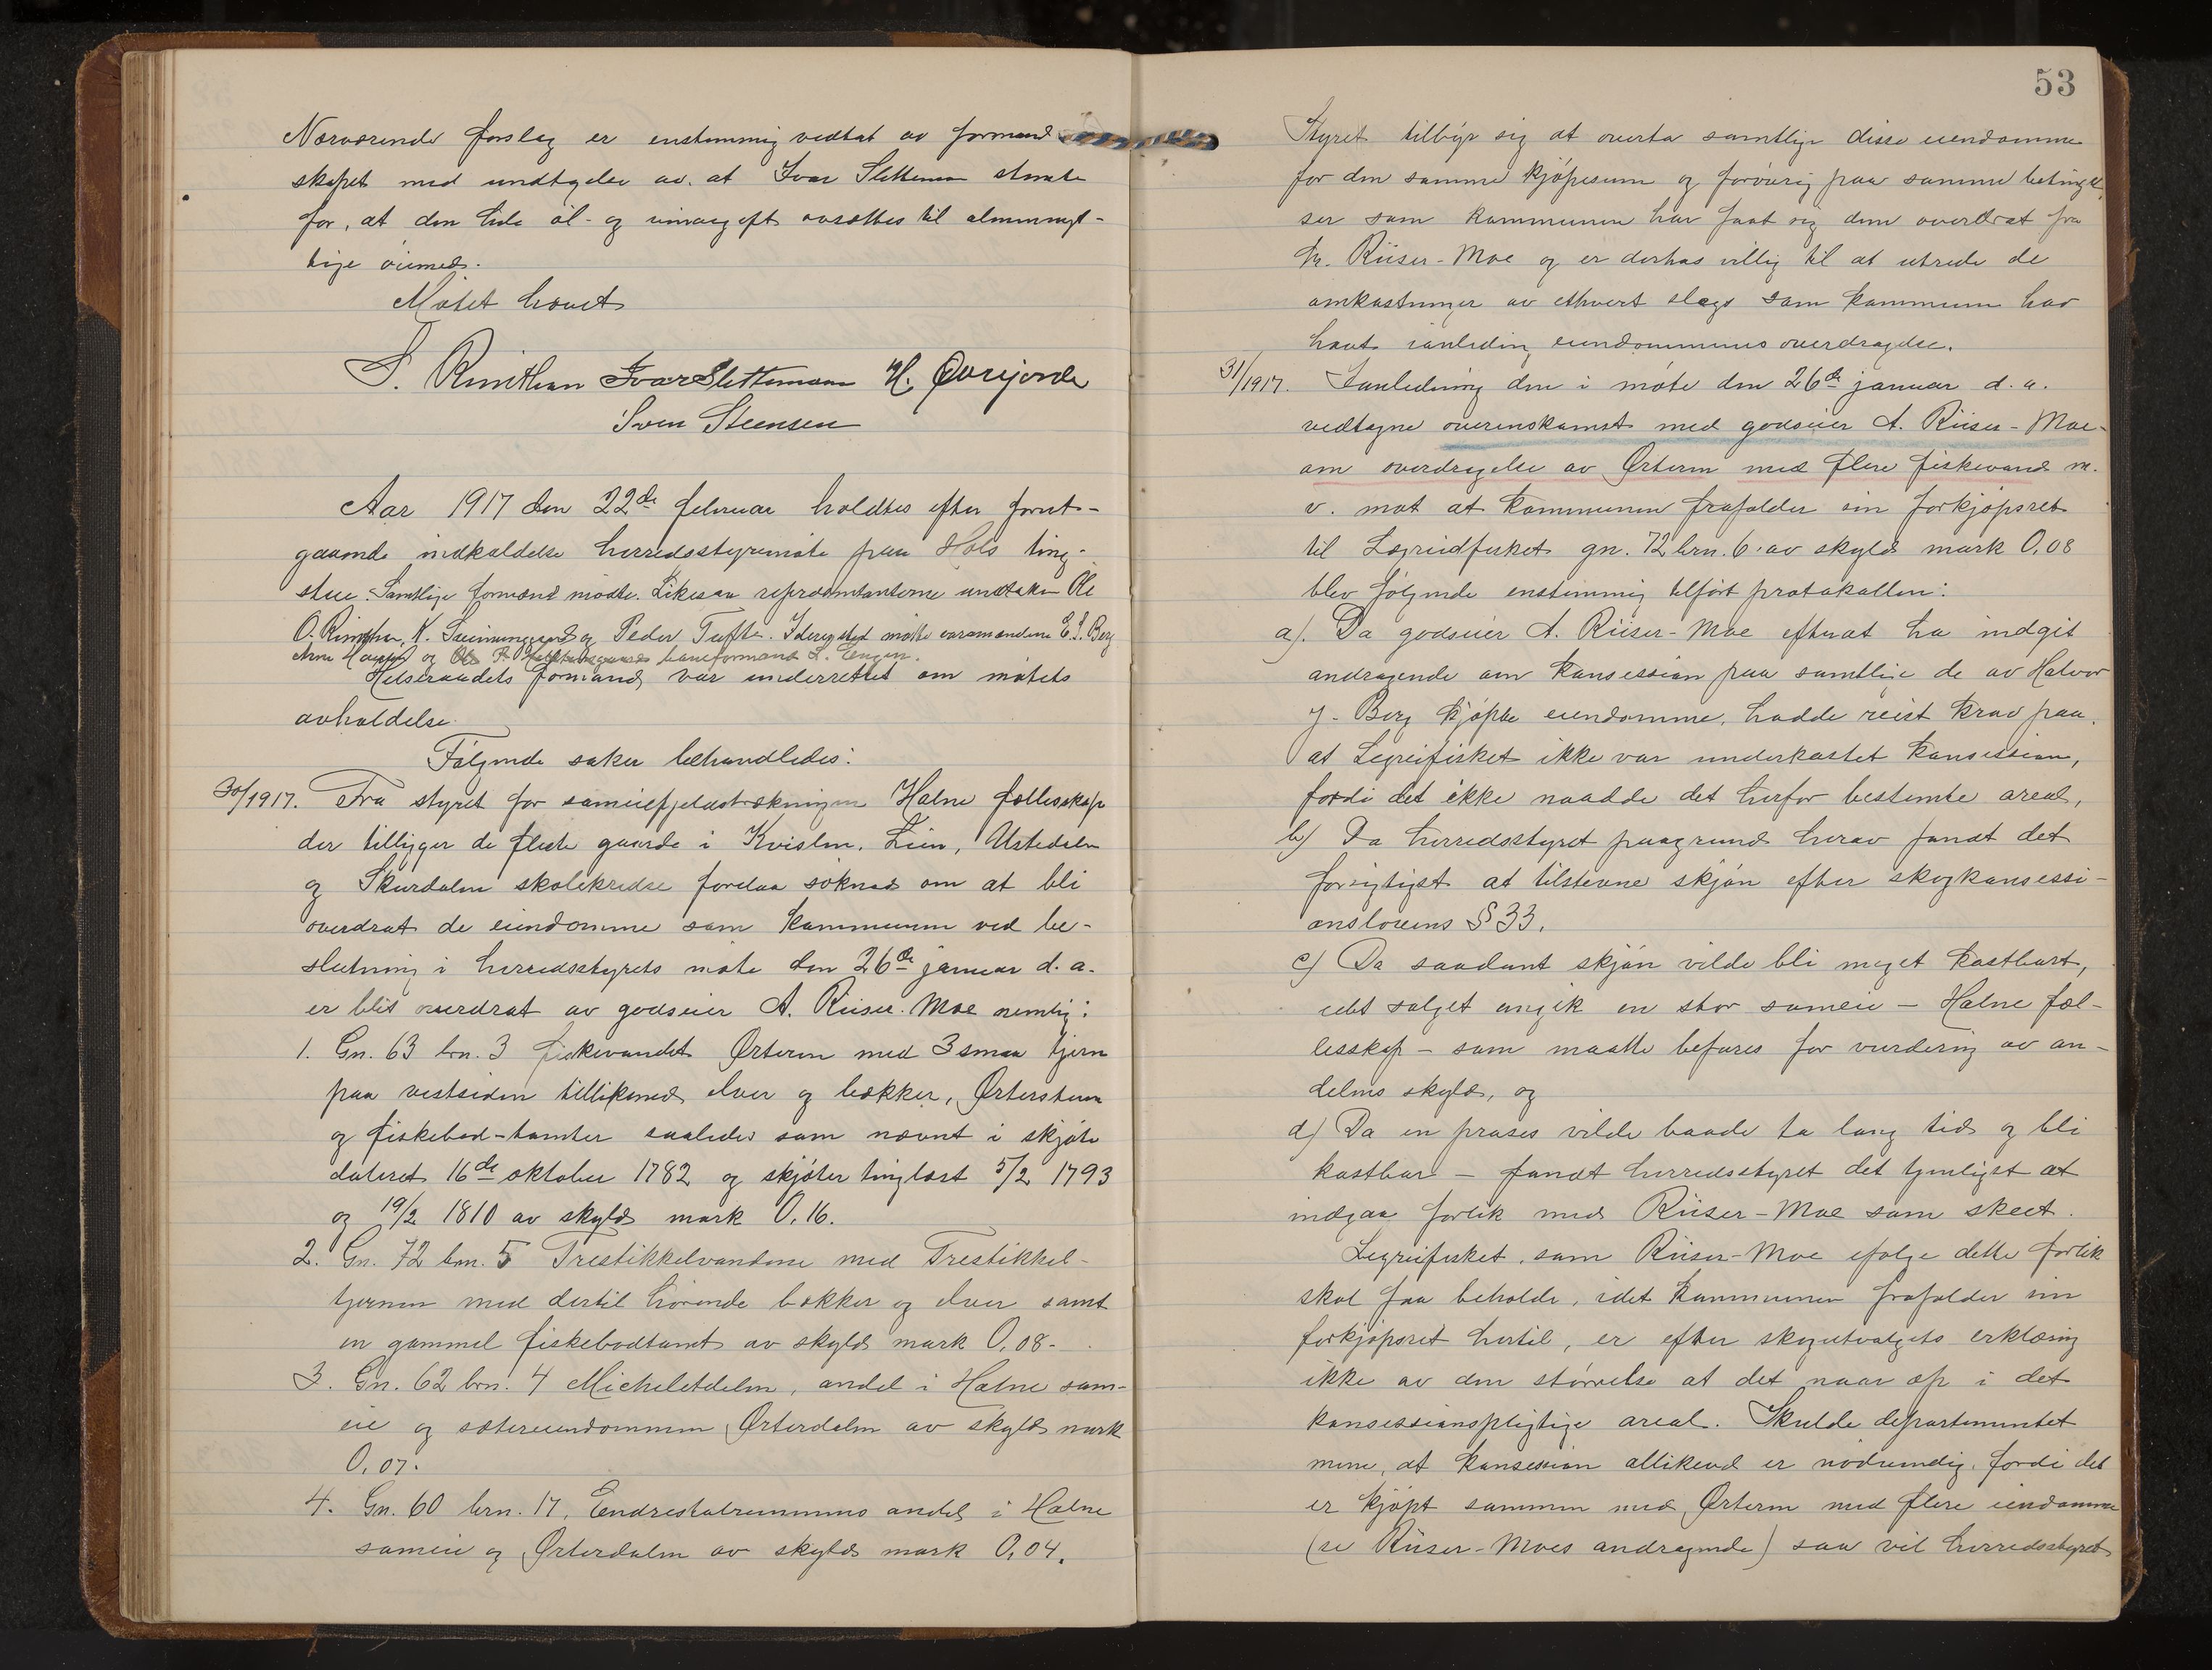 Nærværende forslag er enstemmig vedtat av formand
skapet med undtagelse av. at Ivar Slettemoen stemte
for, at den hele øl- og vinavgift avsættes til almennyt-
tige øiemed.
Møtet hævet
S. Rimthun Ivar Slettemoen H. Øvrejorde
Sven Steensen
Aar 1917 den 22de februar holdtes efter forut-
gaaende indkaldelse herredsstyremøte paa Hols ting-
stue. Samtlige formænd mødte. Likesaa repræsentanterne undtaken Ole
O. Rimthun, K. og Peder Tufte. I deres sted møtte varamændene E. S. Berg
Arne og Ole baneformand L. Engen.
Helseraadets formand var underrettet om møtets
avholdelse.
Følgende saker behandledes:
30/1917. Fra styret for sameiefjeldstrækningen Halne fællesskap
der tilligger de fleste gaarde i Kvislen, Lien, Ustedalen
og Skurdalen skolekredse forelaa søknad om at bli
overdrat de eiendomme som kommunen ved be-
slutning i herredsstyrets møte den 26de januar d. a.
er blit overdrat av godseier A. Riiser-Moe nemlig:
1. Gn. 63 brn. 3 fiskevandet Ørteren med 3 smaa tjern
paa vestsiden tillikemed elver og bækker, Ørtersteen
og fiskebod-tomter saaledes som nævnt i skjøte
dateret 16de oktober 1782 og skjøter tinglæst 5/2 1793
og 19/2 1810 av skyld mark 0,16.
2. Gn. 72 brn. 5 Trestikkelvandene med Trestikkel-
tjernen med dertil hørende bækker og elver samt
en gammel fiskebodtomt av skyld mark 0,08-
3. Gn. 62 brn. 4 Micheletdelen, andel i Halne sam-
eie og sætereiendommen Ørterdalen av skyld mark
0,07.
4. Gn. 60 brn. 17, Endrestølremmens andel i Halne
sameie og Ørterdalen av skyld mark 0,04.
53
Styret tilbyr sig at overta samtlige disse eiendomme
for den samme kjøpesum og forøvrig paa samme betingel-
ser som kommunen har faat sig dem overdrat fra
hr. Riiser-Moe og er derhos villig til at utrede de
omkostninger av ethvert slags som kommunen har
havt ianledning eiendommenes overdragelse.
31/1917. Ianledning den i møte den 26de januar d. a.
vedtagne overenskomst med godseier A. Riiser-Moe-
om overdragelse av Ørteren med flere fiskevand m.
v. mot at kommunen frafalder sin forkjøpsret
til Lægreidfisket gn. 72 brn. 6 av skyld mark 0,08
blev følgende enstemmig tilført protokollen:
a). Da godseier A. Riiser-Moe efterat ha indgit
andragende om konsession paa samtlige de av Halvor
J. Berg kjøpte eiendomme, hadde reist krav paa,
at Legreifisket ikke var underkastet konsession,
fordi det ikke naadde det herfor bestemte areal,
b) Da herredsstyret paagrund herav fandt det
forsigtigst at tilstevne skjøn efter skogkonsessi-
onslovens § 33.
c) Da saadant skjøn vilde bli meget kostbart,
idet salget angik en stor sameie - Halne fæl-
lesskap - som maatte befares for vurdering av an-
delens skyld, og
d) Da en proses vilde baade ta lang tid og bli
kostbar - fandt herredsstyret det tjenligst at
indgaa forlik med Riiser-Moe som skeet.
Legreifisket, som Riiser-Moe ifølge dette forlik
skal faa beholde, idet kommunen frafalder sin
forkjøpsret hertil, er efter skogutvalgets erklæring
ikke av den størrelse at det naar op i det
konsessionspligtige areal. Skulde departementet
mene, at konsession allikevel er nødvendig, fordi det
er kjøpt sammen med Ørteren med flere eiendomme
(se Riiser-Moes andragende) saa vil herredsstyret